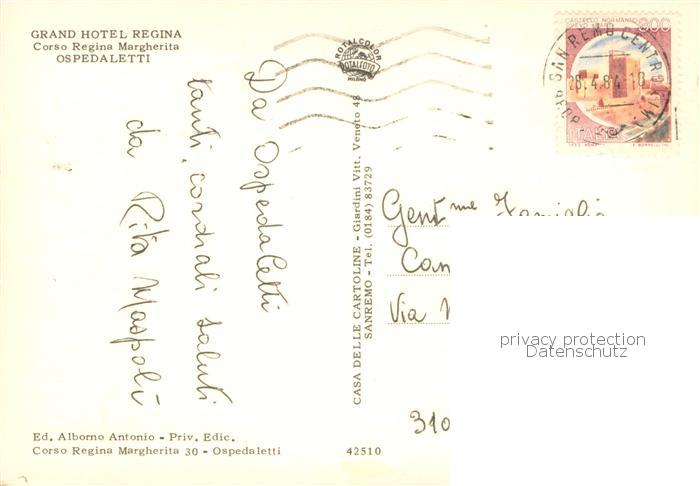 GRAND HOTEL REGINA
Corso Regina Margherita
OSPEDALETTI
ROTALCOLOR
ROTALFOTO
MILANO
CASTELLO NORMANNO
300
SAN REMO CENTRO
26.4.84-18
ITALIA
Da Ospedaletti
tanti cordiali saluti
da Rita Maspoli
CASA DELLE CARTOLINE - Giardini Vitt. Veneto 48
SANREMO - Tel. (0184) 83729
Gent.me Famiglia
Con
Via
310
privacy protection
Datenschutz
Ed. Alborno Antonio - Priv. Edic.
Corso Regina Margherita 30 - Ospedaletti
42510